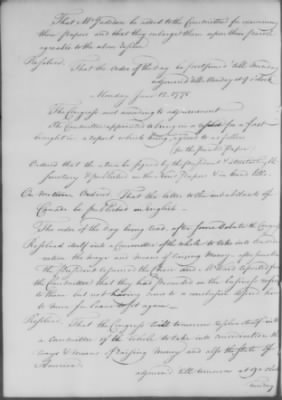 That Mr Gadsden be added to the Committee for examining
these papers and that they enlarge them upon their present
agreeable to the above
Resolved, That the order of the day be postponed till Monday
adjourned till Monday at 9 oClock
Monday June 12. 1775
The Congress met according to adjournment
The Committee appointed to bring in a for a fast
brought in a report which being agreed to is as follows
(see the printed paper)
Ordered that the above be signed by the president & attested by the
Secretary & published in the News Papers & in hand bills.
On motion Ordered That the letter to the inhabitants of
Canada be published in english
The order of the day being read, after some debate the Congress
Resolved itself into a Committee of the whole to take into consideration
the ways and means of raising money, & after some time
the President resumed the Chair and Mr Ward reported from
the Committee that they had proceeded on the business referred
to them but not having come to a conclusion desired him
to move for leave to sit again
Resolved, That the Congress will tomorrow resolve itself into
a committee of the whole to take into consideration the
ways & means of raising money and also the state of
America.
adjourned till tomorrow at 9 o Clock